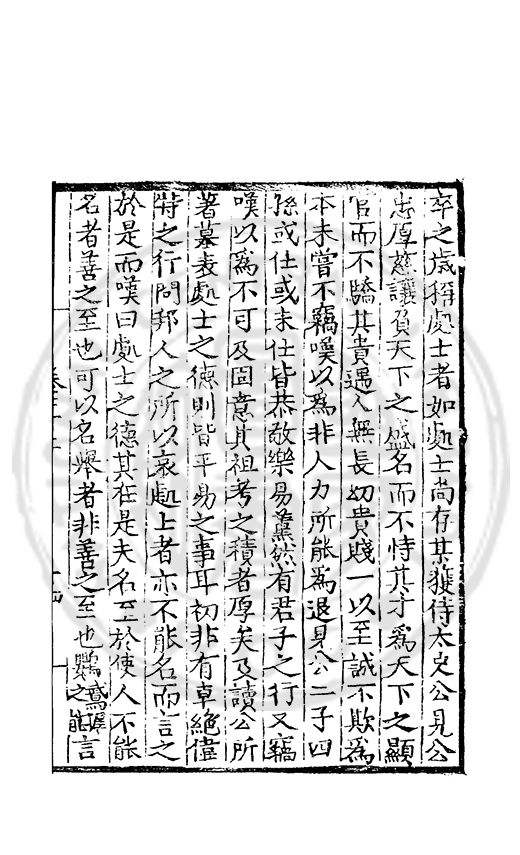 卒之歲稱處士者如處士尚存某獲侍太史公見公
忠厚慈讓負天下之盛名而不恃其才爲天下之顯
官而不驕其貴遇人無長幼貴賤一以至誠不欺爲
本未嘗不竊嘆以爲非人力所能爲退見公二子四
孫或仕或未仕皆恭敬樂易薰然有君子之行又竊
嘆以爲不可及固意其祖考之積者厚矣及讀公所
著墓表處士之德則皆平易之事耳初非有卓絶僅
特之行問邦人之所以哀處士者亦不能名而言之
於是而嘆曰處士之德其在是夫名至於使人不能
名者善之至也可以名舉者非善之至也鸚鵡之能言